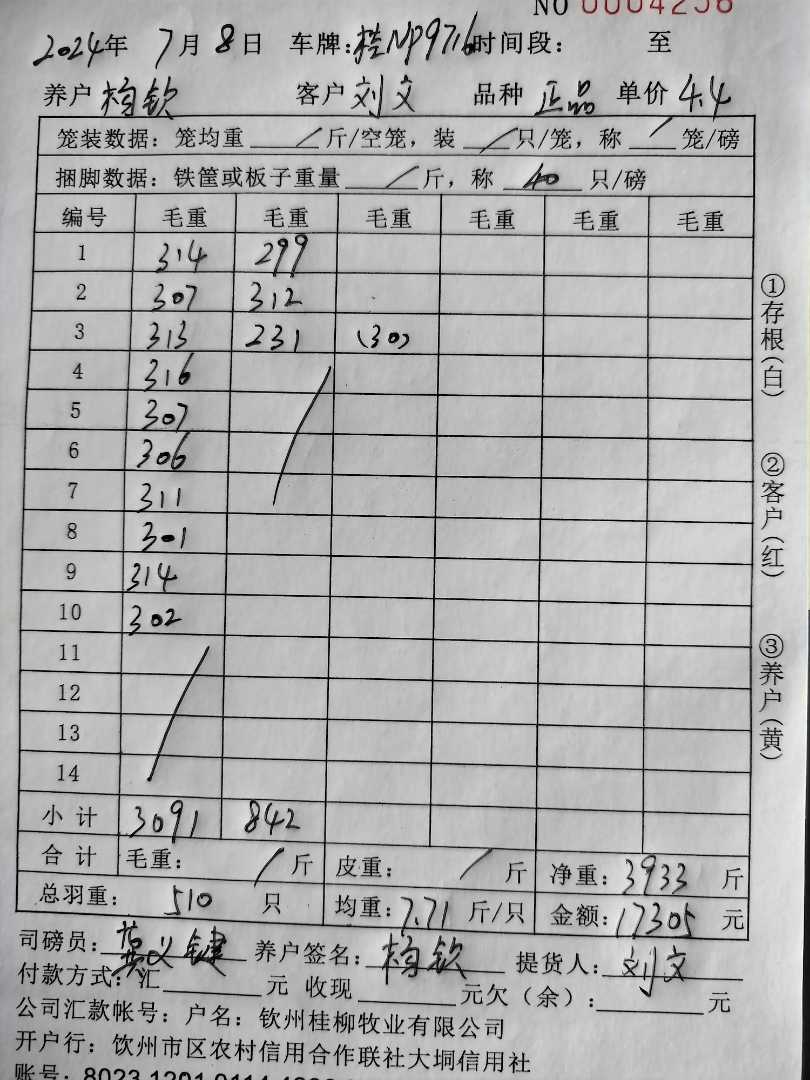 NO 0004256
2024年 7月8日 车牌:桂NP9716时间段: 至
养户 梅钦 客户 刘文 品种 正品 单价 4.4
笼装数据: 笼均重 / 斤/空笼, 装 / 只/笼, 称 / 笼/磅
捆脚数据: 铁筐或板子重量 / 斤, 称 40 只/磅
编号 毛重 毛重 毛重 毛重 毛重 毛重
1 314 299
2 307 312
3 313 231 (30)
4 316
5 307
6 306
7 311
8 301
9 314
10 302
11
12
13
14
小计 3091 842
合计 毛重: / 斤 皮重: / 斤 净重: 3933 斤
总羽重: 510 只 均重: 7.71 斤/只 金额: 17305 元
司磅员: 莫义键 养户签名: 梅钦 提货人: 刘文
付款方式: 汇 元 收现 元欠(余): 元
公司汇款帐号: 户名: 钦州桂柳牧业有限公司
开户行: 饮州市区农村信用合作联社大垌信用社
账号: 8023 1201 0114
①存根(白)
②客户(红)
③养户(黄)